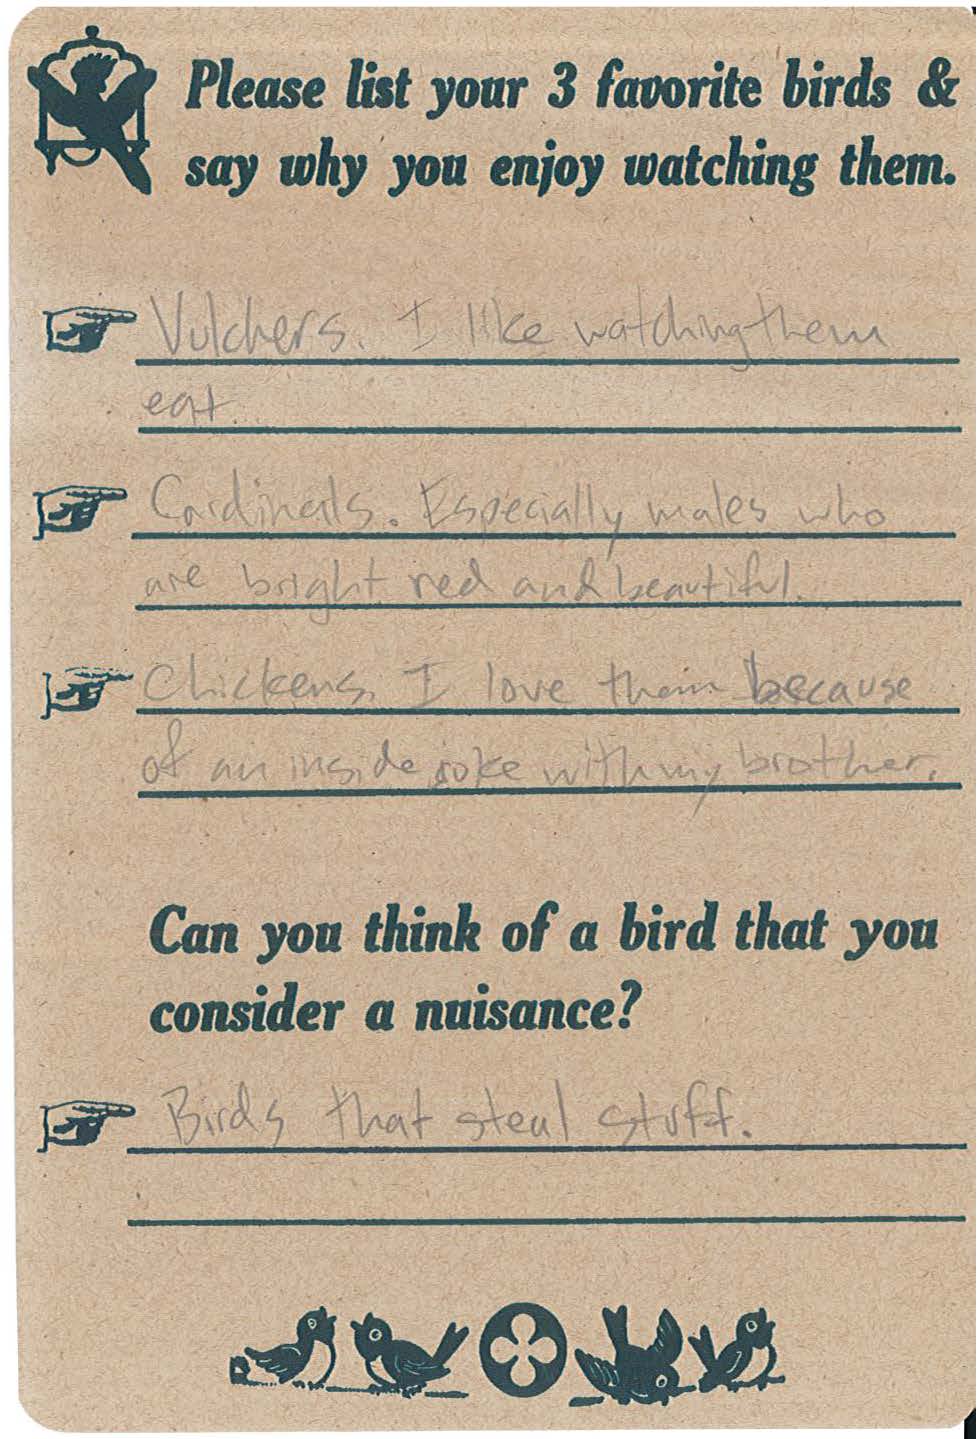 Please list your 3 favorite birds &
say why you enjoy watching them.
Vulchers. I like watching them
eat.
Cardinals. Especially males who
are bright red and beautiful.
Chickens. I love them because
of an inside joke with my brother.
Can you think of a bird that you
consider a nuisance?
Birds that steal stuff.